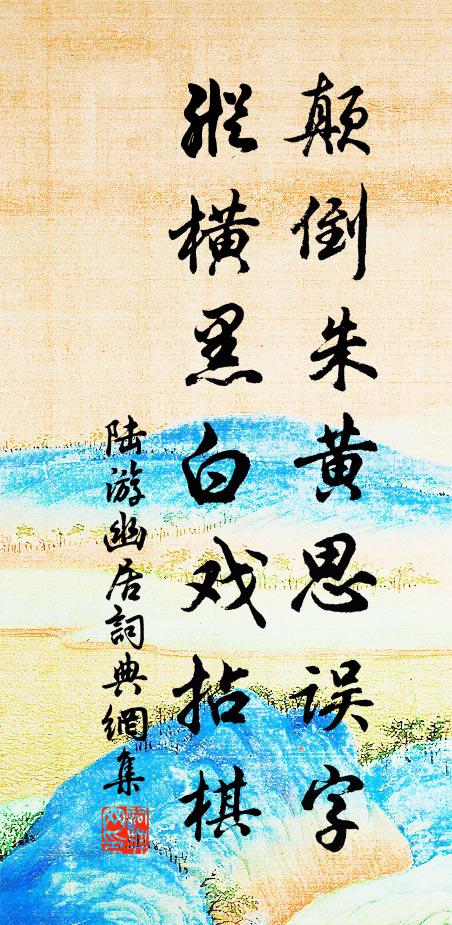 颠倒朱黄思误字
纵横黑白戏拈棋
陆游幽居詞典網集